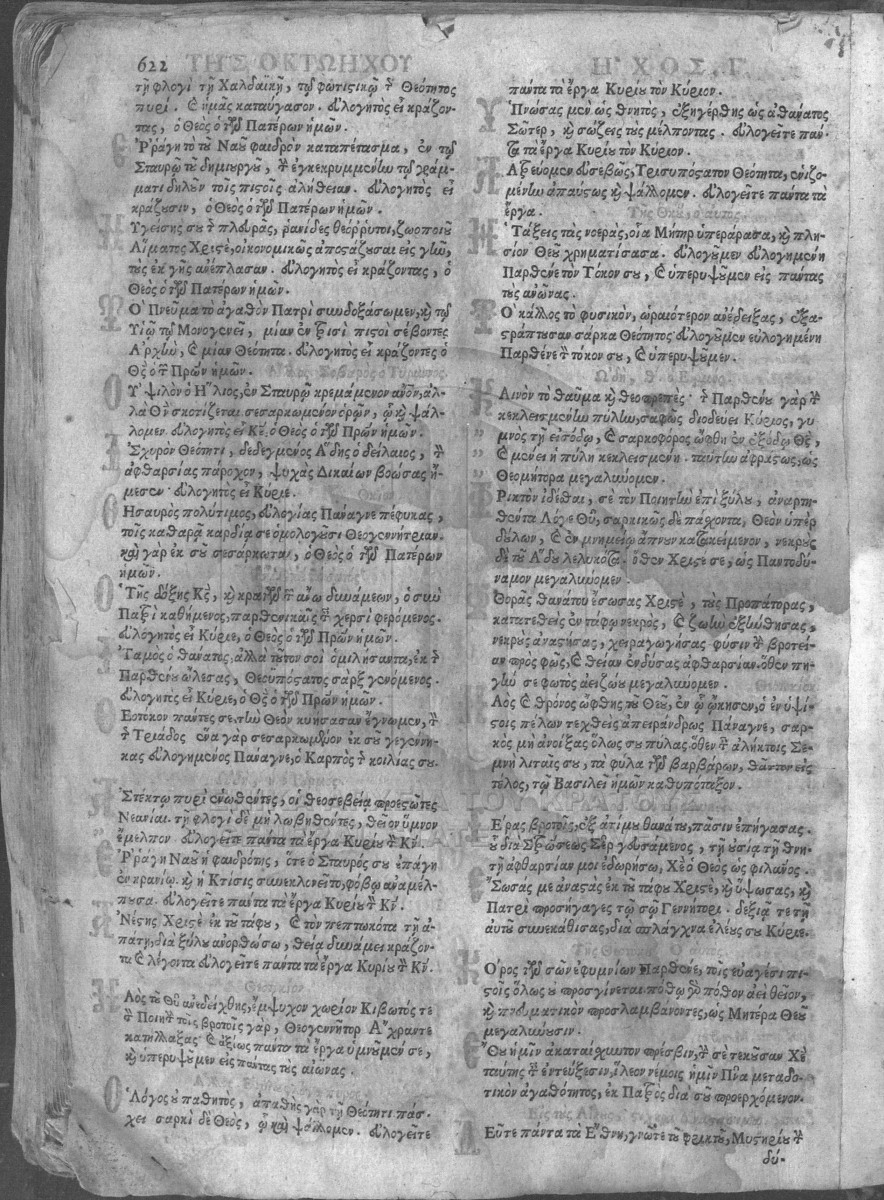 622 ΤΗΣ ΟΚΤΩΗΧΟΥ
τῇ φλογὶ τῇ Χαλδαϊκῇ, τῷ φωτιστικῷ τῆς Θεότητος
πυρί. καὶ ἡμᾶς καταύγασον. εὐλογητὸς εἶ κράζον-
τας, ὁ Θεὸς ὁ τῶν Πατέρων ἡμῶν.
Ἐῤῥάγη τὸ τοῦ Ναοῦ φαιδρὸν καταπέτασμα, ἐν τῷ
Σταυρῷ τοῦ δημιουργοῦ, τὴν ἐγκεκρυμμένην τῷ γράμ-
ματι δηλοῦν τοῖς πιστοῖς ἀλήθειαν. εὐλογητὸς εἶ
κράζουσιν, ὁ Θεὸς ὁ τῶν Πατέρων ἡμῶν.
Νυγείσης σου τῆς πλευρᾶς, ῥανίδες θεόῤῥυτοι, ζωοποιοῦ
Αἵματος Χριστὲ, οἰκονομικῶς ἀποστάζουσαι εἰς γῆν,
τοὺς ἐκ γῆς ἀνέπλασαν. εὐλογητὸς εἶ κράζοντας, ὁ
Θεὸς ὁ τῶν Πατέρων ἡμῶν.
Τὸ Πνεῦμα τὸ ἀγαθὸν Πατρὶ συνδοξάσωμεν, καὶ τῷ
Υἱῷ τῷ Μονογενεῖ, μίαν ἐν Τρισὶ πιστοὶ σέβοντες
Ἀρχὴν, καὶ μίαν Θεότητα. εὐλογητὸς εἶ κράζοντες ὁ
Θς ὁ τῶν Πρων ἡμῶν.
Ὁ ὑψιλὸν ὁ Ἥλιος, ἐν Σταυρῷ κρεμάμενον ἀνον, ἀλ-
λὰ Θν σκοτίζεται σεσαρκωμένον ὁρῶν, ᾧ καὶ ψάλ-
λομεν εὐλογητὸς εἶ Κε, ὁ Θεὸς ὁ τῶν Πρων ἡμῶν.
Ἰσχυρὸν Θεότητι, δεδεγμένος ᾍδης ὁ δείλαιος, τὸν
ἀφθαρσίας πάροχον, ψυχὰς Δικαίων βοώσας ἤ-
μεσεν· εὐλογητὸς εἶ Κύριε.
Θησαυρὸς πολύτιμος, εὐλογίας Πάναγνε πέφυκας,
τοῖς καθαρᾷ καρδίᾳ σε ὁμολογοῦσι Θεογεννήτριαν.
καὶ γὰρ ἐκ σοῦ σεσάρκωται, ὁ Θεὸς ὁ τῶν Πατέρων
ἡμῶν.
Ὁ τῆς δόξης Κς, καὶ κρατῶν τῶν ἄνω δυνάμεων, ὁ σὺν
Πατρὶ καθήμενος, παρθενικαῖς τε χερσὶ φερόμενος.
εὐλογητὸς εἶ Κύριε, ὁ Θεὸς ὁ τῶν Πρων ἡμῶν.
Ἰταμὸς ὁ θάνατος, ἀλλὰ τοῦτον σοὶ ὁμιλήσαντα, ἐκ τῆς
Παρθένου ὤλεσας, Θεοϋπόστατος σὰρξ γενόμενος.
εὐλογητὸς εἶ Κύριε, ὁ Θς ὁ τῶν Πρων ἡμῶν.
Θεοτόκον πάντες σε, τὴν Θεὸν κυήσασαν ἔγνωμεν, τὸν
τῆς Τριάδος ἕνα γὰρ σεσαρκωμένον ἐκ σοῦ γεγέννη-
κας εὐλογημένος Πάναγνε, ὁ Καρπὸς τῆς κοιλίας σου.
Ἀστέκτῳ πυρὶ ἑνωθέντες, οἱ θεοσεβείᾳ προεστῶτες
Νεανίαι. τῇ φλογὶ δὲ μὴ λωβηθέντες, θεῖον ὕμνον
ἔμελπον· εὐλογεῖτε πάντα τὰ ἔργα Κυρίου τὸν Κν.
Ἐῤῥάγη Ναοῦ ἡ φαιδρότης, ὅτε ὁ Σταυρός σου ἐπάγη
ἐν κρανίῳ. καὶ ἡ Κτίσις συνεκλονεῖτο, φόβῳ ἀναμέλ-
πουσα. εὐλογεῖτε πάντα τὰ ἔργα Κυρίου τὸν Κν.
Ἀνέστης Χριστὲ ἐκ τοῦ τάφου, καὶ τὸν πεπτωκότα τῇ ἀ-
πάτῃ, διὰ ξύλου ἀνορθώσω, θείᾳ δυνάμει κράζον-
τα καὶ λέγοντα εὐλογεῖτε πάντα τὰ ἔργα Κυρίου τὸν Κν.
Ναὸς τοῦ Θυ ἀνεδείχθης, ἔμψυχον χωρίον Κιβωτός τε
τὸν Ποιητὴν τοῖς βροτοῖς γὰρ, Θεογεννῆτορ Ἄχραντε
κατήλλαξας καὶ ἀξίως πάντα τὰ ἔργα ὑμνοῦμέν σε,
καὶ ὑπερυψοῦμεν εἰς πάντας τοὺς αἰῶνας.
Ὁ Λόγος ὁ παθητὸς, ἀπαθὴς γὰρ τῇ Θεότητι πάσ-
χει σαρκὶ δὲ Θεὸς, ᾧ καὶ ψάλλομεν. εὐλογεῖτε
ΗΧΟΣ, Γ
πάντα τὰ ἔργα Κυρίου τὸν Κύριον.
Ὑπνώσας μὲν ὡς θνητὸς, ἐξηγέρθης ὡς ἀθάνατος
Σωτὴρ, καὶ σώζεις τοὺς μέλποντας. εὐλογεῖτε πάν-
τα τὰ ἔργα Κυρίου τὸν Κύριον.
Λατρεύομεν εὐσεβῶς, Τρισυπόστατον Θεότητα, ἑνιζο-
μένην ἀπαύστως καὶ ψάλλομεν. εὐλογεῖτε πάντα τὰ
ἔργα.
Τῆς Θκου, ὁ αὐτός.
Τὰς τάξεις τὰς νοερὰς, οἷα Μήτηρ ὑπεράρασα, καὶ πλη-
σίον Θεοῦ χρηματίσασα. εὐλογοῦμεν εὐλογημένη
Παρθένε τὸν Τόκον σου, καὶ ὑπερυψοῦμεν εἰς πάντας
τοὺς αἰῶνας.
Τὸ κάλλος τὸ φυσικὸν, ὡραιότερον ἀνέδειξας, ἐξα-
στράπτουσαν σάρκα Θεότητος εὐλογοῦμεν εὐλογημένη
Παρθένε τὸν τόκον σου, καὶ ὑπερυψοῦμεν.
ᾨδὴ, θ. ὁ Εἱρμός.
Καινὸν τὸ θαῦμα καὶ θεοπρεπές· τῆς Παρθένου γὰρ τὴν
κεκλεισμένην πύλην, σαφῶς διοδεύει Κύριος, γυ-
μνὸς τῇ εἰσόδῳ, καὶ σαρκοφόρος ὤφθη ἐν ἐξόδῳ Θς,
καὶ μένει ἡ πύλη κεκλεισμένη. ταύτην ἀφράστως, ὡς
Θεομήτορα μεγαλύνομεν.
Φρικτὸν ἰδέσθαι, σὲ τὸν Ποιητὴν ἐπὶ ξύλου, ἀναρτη-
θέντα Λόγε Θυ, σαρκικῶς δὲ πάσχοντα, Θεὸν ὑπὲρ
δούλων, καὶ ἐν μνημείῳ ἄπνουν κατακείμενον, νεκροὺς
δὲ τοῦ ᾍδου λελυκότα. ὅθεν Χριστὲ σὲ, ὡς Παντοδύ-
ναμον μεγαλύνομεν.
Φθορᾶς θανάτου ἔσωσας Χριστὲ, τοὺς Προπάτορας,
κατατεθεὶς ἐν τάφῳ νεκρὸς, καὶ ζωὴν ἐξήνθησας,
νεκροὺς ἀναστήσας, χειραγωγήσας φύσιν τὴν βροτεί-
αν πρὸς φῶς, καὶ θείαν ἐνδύσας ἀφθαρσίαν. ὅθεν πη-
γήν σε φωτὸς ἀειζώου μεγαλύνομεν.
Ναὸς καὶ θρόνος ὤφθης τοῦ Θεοῦ, ἐν ᾧ ᾤκησεν, ὁ ἐν ὑψί-
στοις πέλων τεχθεὶς ἀπειράνδρως Πάναγνε, σαρ-
κὸς μὴ ἀνοίξας ὅλως σου πύλας ὅθεν ταῖς ἀλήκτοις Σε-
μνὴ λιταῖς σου, τὰ φῦλα τῶν βαρβάρων, θᾶττον εἰς
τέλος, τῷ Βασιλεῖ ἡμῶν καθυπόταξον.
Γέρας βροτοῖς, ἐξ ἀτίμου θανάτου, πᾶσιν ἐπήγασας.
οὗ διὰ Σταυρώσεως Σερ γευσάμενος, τῇ οὐσίᾳ τῇ θνη-
τῇ ἀφθαρσίαν μοι ἐδωρήσω, Χε ὁ Θεὸς ὡς φιλανος.
Ἔσωσάς με ἀναστὰς ἐκ τοῦ τάφου Χριστὲ, καὶ ὕψωσας, καὶ
Πατρὶ προσήγαγες τῷ σῷ Γεννήτορι. δεξιᾷ τε τῇ
αὐτοῦ συνεκάθισας, διὰ σπλάγχνα ἐλέους σου Κύριε.
Τῆς Θεοτόκου. Ὁ αὐτός.
Κόρος τῶν σῶν ἐφυμνίων Παρθένε, τοῖς εὐαγέσι πι-
στοῖς ὅλως οὐ προσγίνεται πόθῳ γὰρ πόθον ἀεὶ θεῖον,
καὶ πνευματικὸν προσλαμβάνοντες, ὡς Μητέρα Θεοῦ
μεγαλύνουσιν.
Ἔθου ἡμῖν ἀκαταίσχυντον πρέσβιν, τὴν σὲ τεκοῦσαν Χε.
ταύτης ταῖς ἐντεύξεσιν, ἵλεον νέμοις ἡμῖν Πνα μεταδο-
τικὸν ἀγαθότητος, ἐκ Πατρὸς διὰ σοῦ προερχόμενον.
Δεῦτε πάντα τὰ Ἔθνη, γνῶτε τοῦ φρικτοῦ, Μυστηρίου τὴν
δύ-